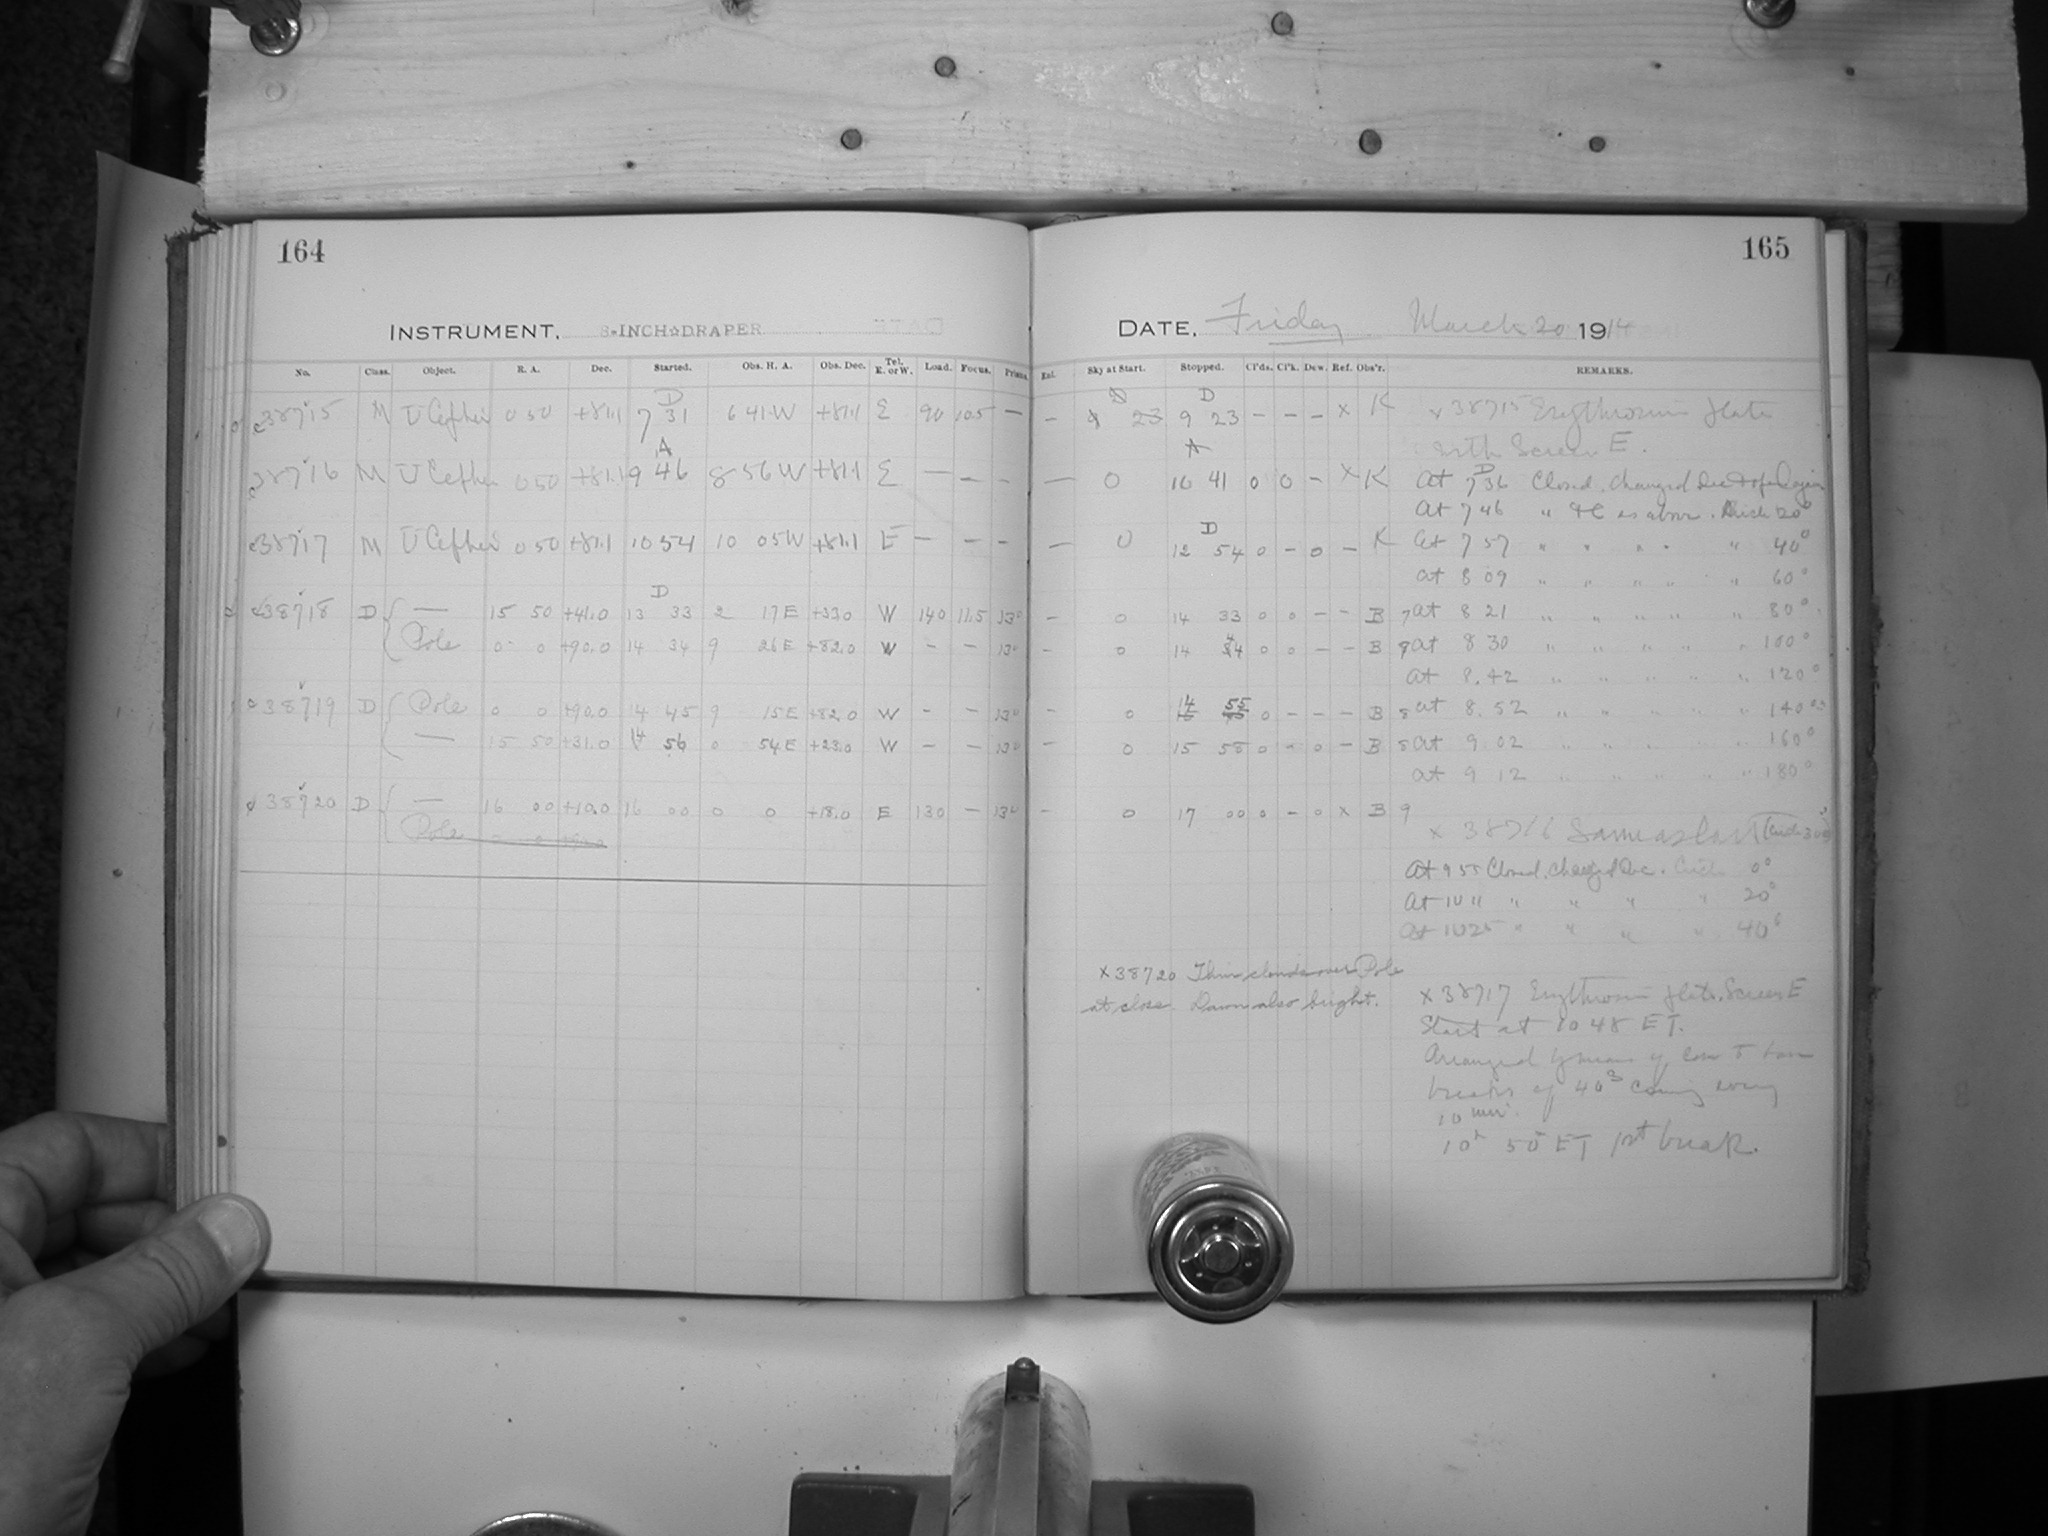 164
INSTRUMENT, 8-INCH☆DRAPER
No. Class. Object. R. A. Dec. Started. Obs. H. A. Obs. Dec. Tel. E. or W. Load. Focus. Prism.
38715 M U Cephei 0 50 +81.1 D 7 31 6 41 W +81.1 E 90 10.5 —
38716 M U Cephei 0 50 +81.1 A 9 46 8 56 W +81.1 E — — —
38717 M U Cephei 0 50 +81.1 10 54 10 05 W +81.1 E — — —
38718 D — 15 50 +41.0 D 13 33 2 17 E +33.0 W 140 11.5 13°
Pole 0 0 +90.0 14 34 9 26 E +82.0 W — — 13°
38719 D Pole 0 0 +90.0 14 45 9 15 E +82.0 W — — 13°
— 15 50 +31.0 14 56 0 54 E +23.0 W — — 13°
38720 D — 16 00 +10.0 16 00 0 0 +18.0 E 130 — 13°
Pole
165
DATE, Friday March 20 1914
Ext. Sky at Start. Stopped. Cl'ds. Cl'k. Dew. Ref. Obs'r. REMARKS.
— D 9 23 — — — x K x 38715 Erythrosin plate
with Screen E.
— 0 A 10 41 0 0 — x K At D 7 36 Closed, changed Dec & open again
At 7 46 " as above. Circle 20°
— 0 D 12 54 0 — 0 — K at 7 57 " " " " " 40°
at 8 09 " " " " " 60°
— 0 14 33 0 0 — — B 7 at 8 21 " " " " " 80°
— 0 14 44 0 0 — — B 9 at 8 30 " " " " " 100°
at 8.42 " " " " " 120°
0 14 55 0 — — — B 8 at 8.52 " " " " " 140°
— 0 15 58 0 — 0 — B 8 at 9.02 " " " " " 160°
at 9 12 " " " " " 180°
— 0 17 00 0 — 0 x B 9
x 38716 Same as last
At 9 55 Closed, changed Dec. Circle 0°
At 10 11 " " " " 20°
At 10 25 " " " " 40°
x 38720 Thin clouds over Pole
at close. Dawn also bright.
x 38717 Erythrosin plate. Screen E
Start at 10 48 ET.
Arranged by means of
breaks of 40ˢ coming every
10 min.
10ʰ 50 ET 1st break.